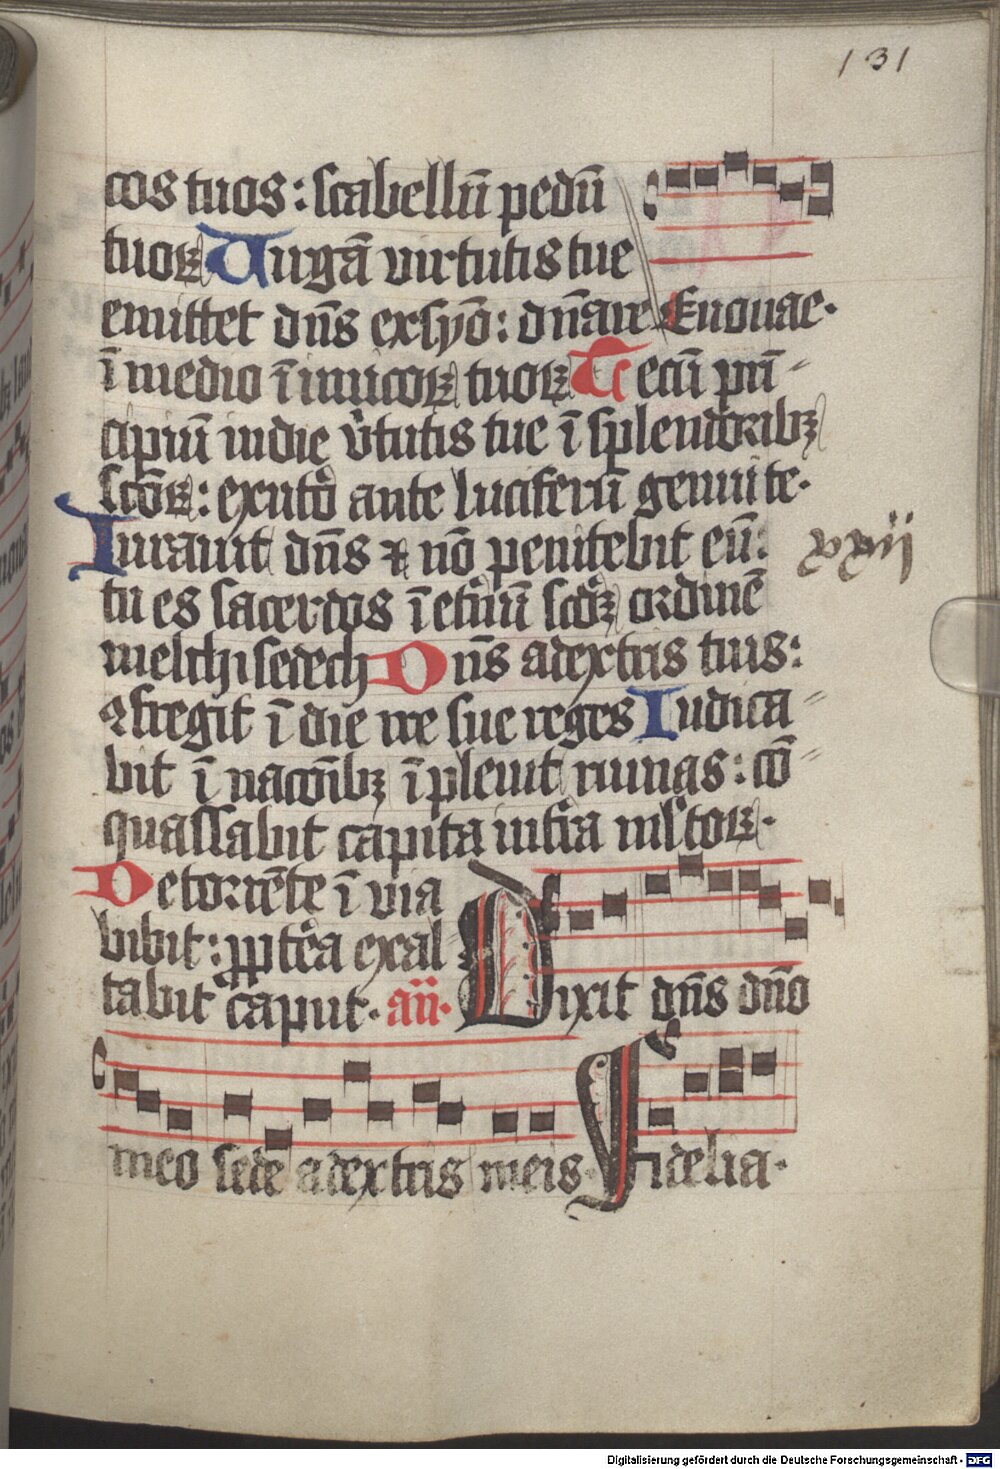 131
cos tuos : scabellū pedū
tuoꝝ Uirgā virtutis tue
emittet dn̄s exsyō : dn̄are Euouae ·
ī medio īimicoꝝ tuoꝝ Tecū prī-
cipiū in die v̓tutis tue ī splendoribꝫ
sc̄oꝝ : ex uto̓ ante luciferū genui te ·
Iurauit dn̄s ⁊ nō penitebit eū :
xxii
tu es sacerdos ī et̓nū scd̓ꝫ ordinē
melchisedech Dn̄s a dextris tuis :
ꝯfregit ī die ire sue reges Iudica-
bit ī nacōibꝫ īplebit ruinas : cō-
quassabit capita in t̓ra ml̓toꝝ ·
De torrēte ī via
bibit : ꝓpt̓ea exal
tabit caput · añ · Dixit dn̄s dn̄o
meo sede a dextris meis · Fidelia ·
Digitalisierung gefördert durch die Deutsche Forschungsgemeinschaft - DFG